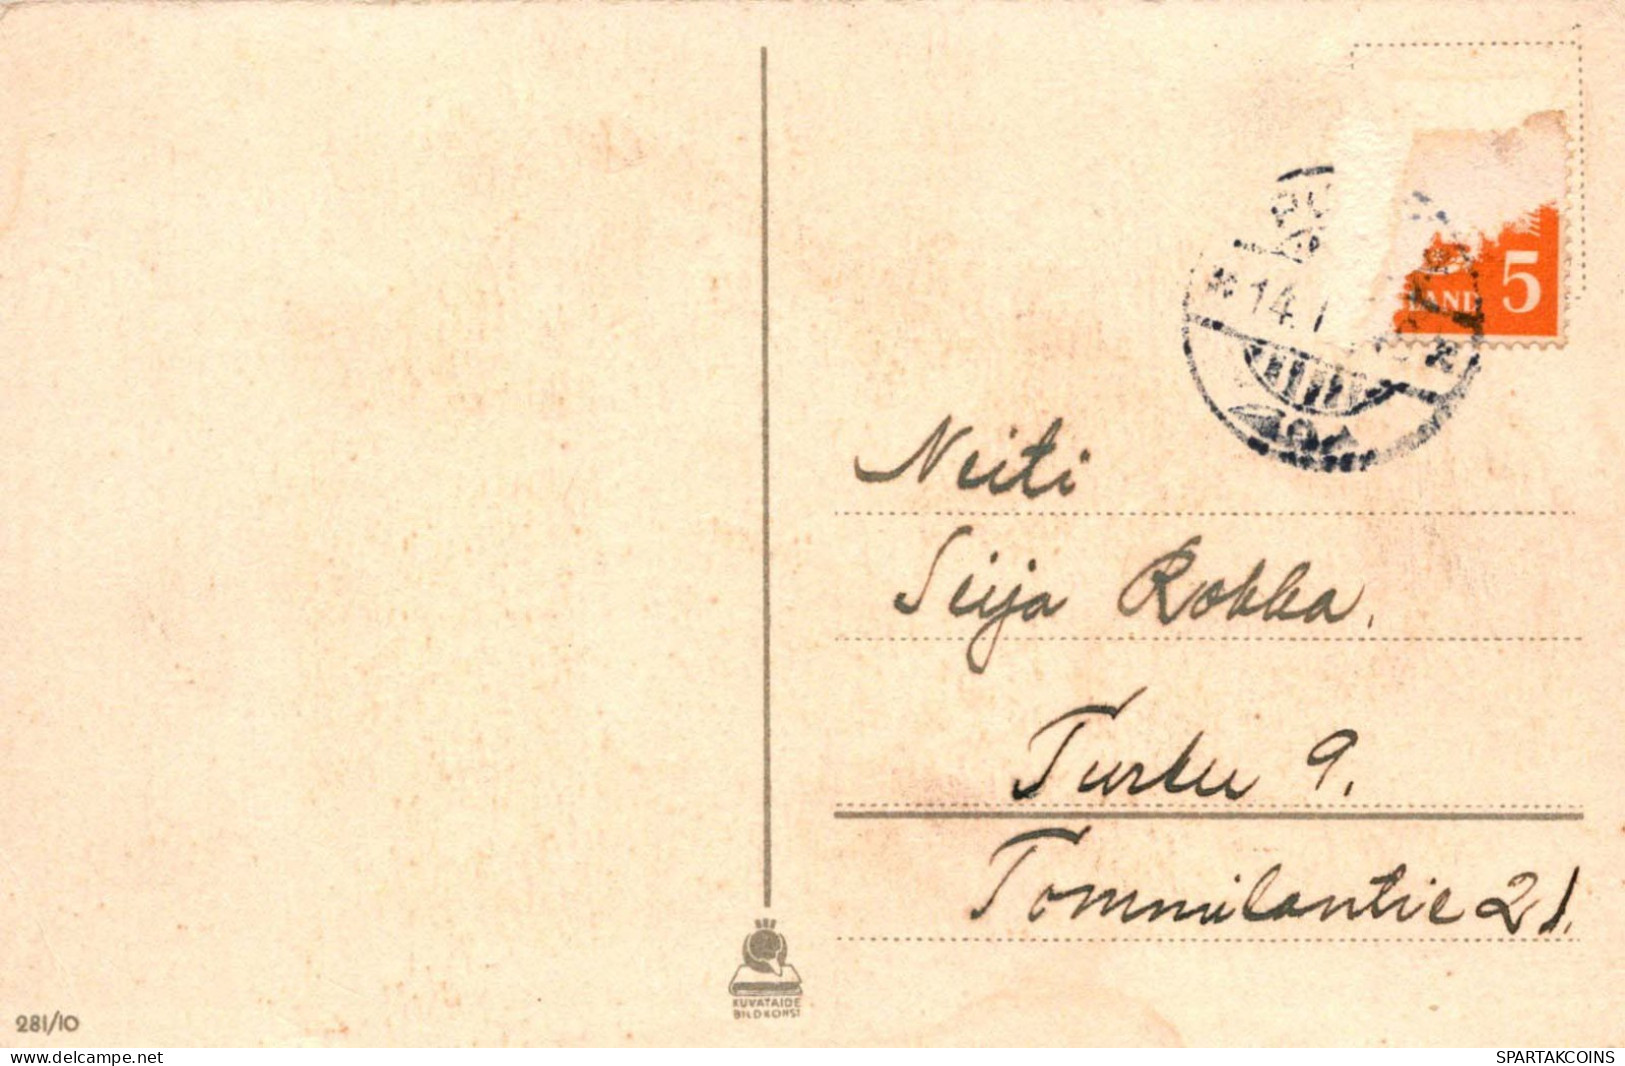 LAND 5
* 14.1
Neiti
Seija Rokka.
Turku 9.
Tommilantie 21.
KUVATAIDE
BILDKONST
281/10
www.delcampe.net
SPARTAKCOINS